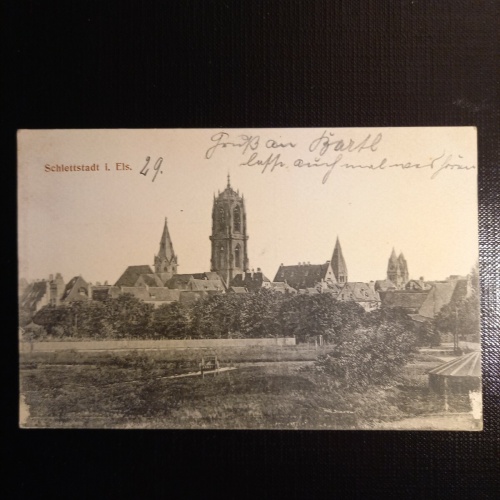 Gruß an Bartl
Schlettstadt i. Els. 29.
lass auch mal was hören